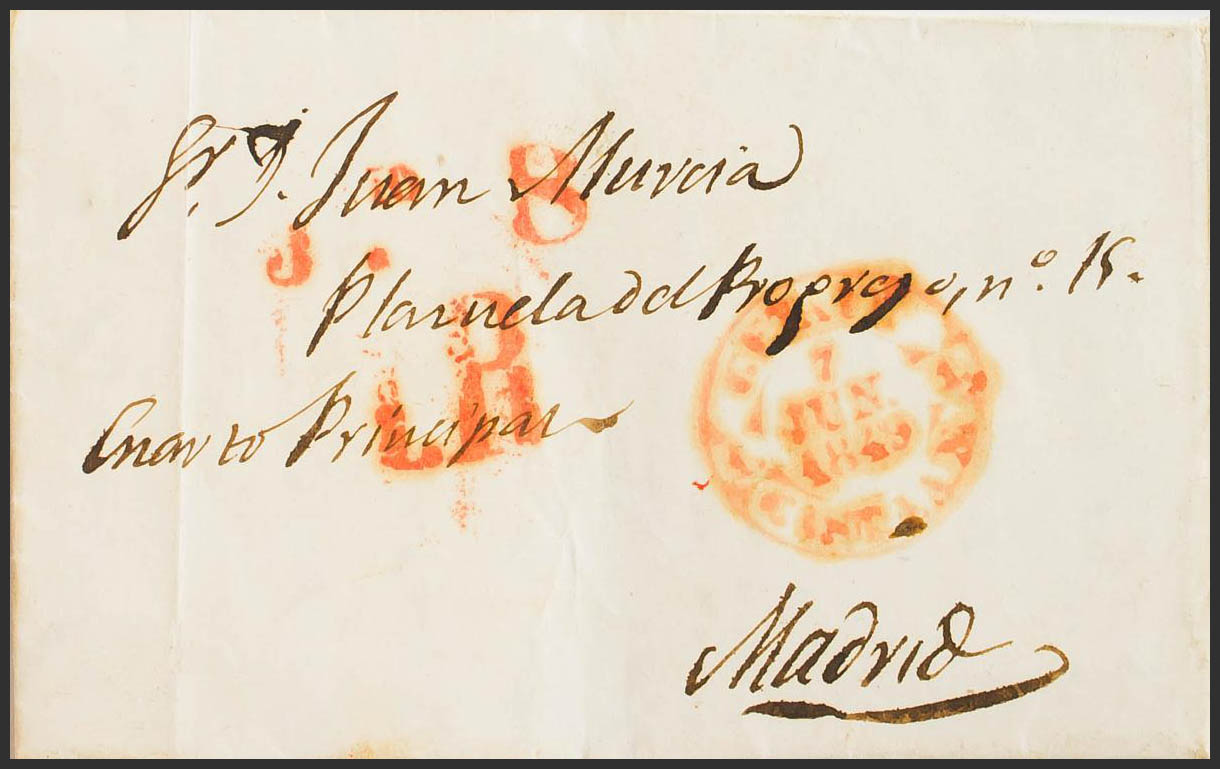 Sr. D. Juan Murcia
8
Plazuela del Progreso, nº. 15.
7
JUN.
1849
Cuarto Principal
Madrid